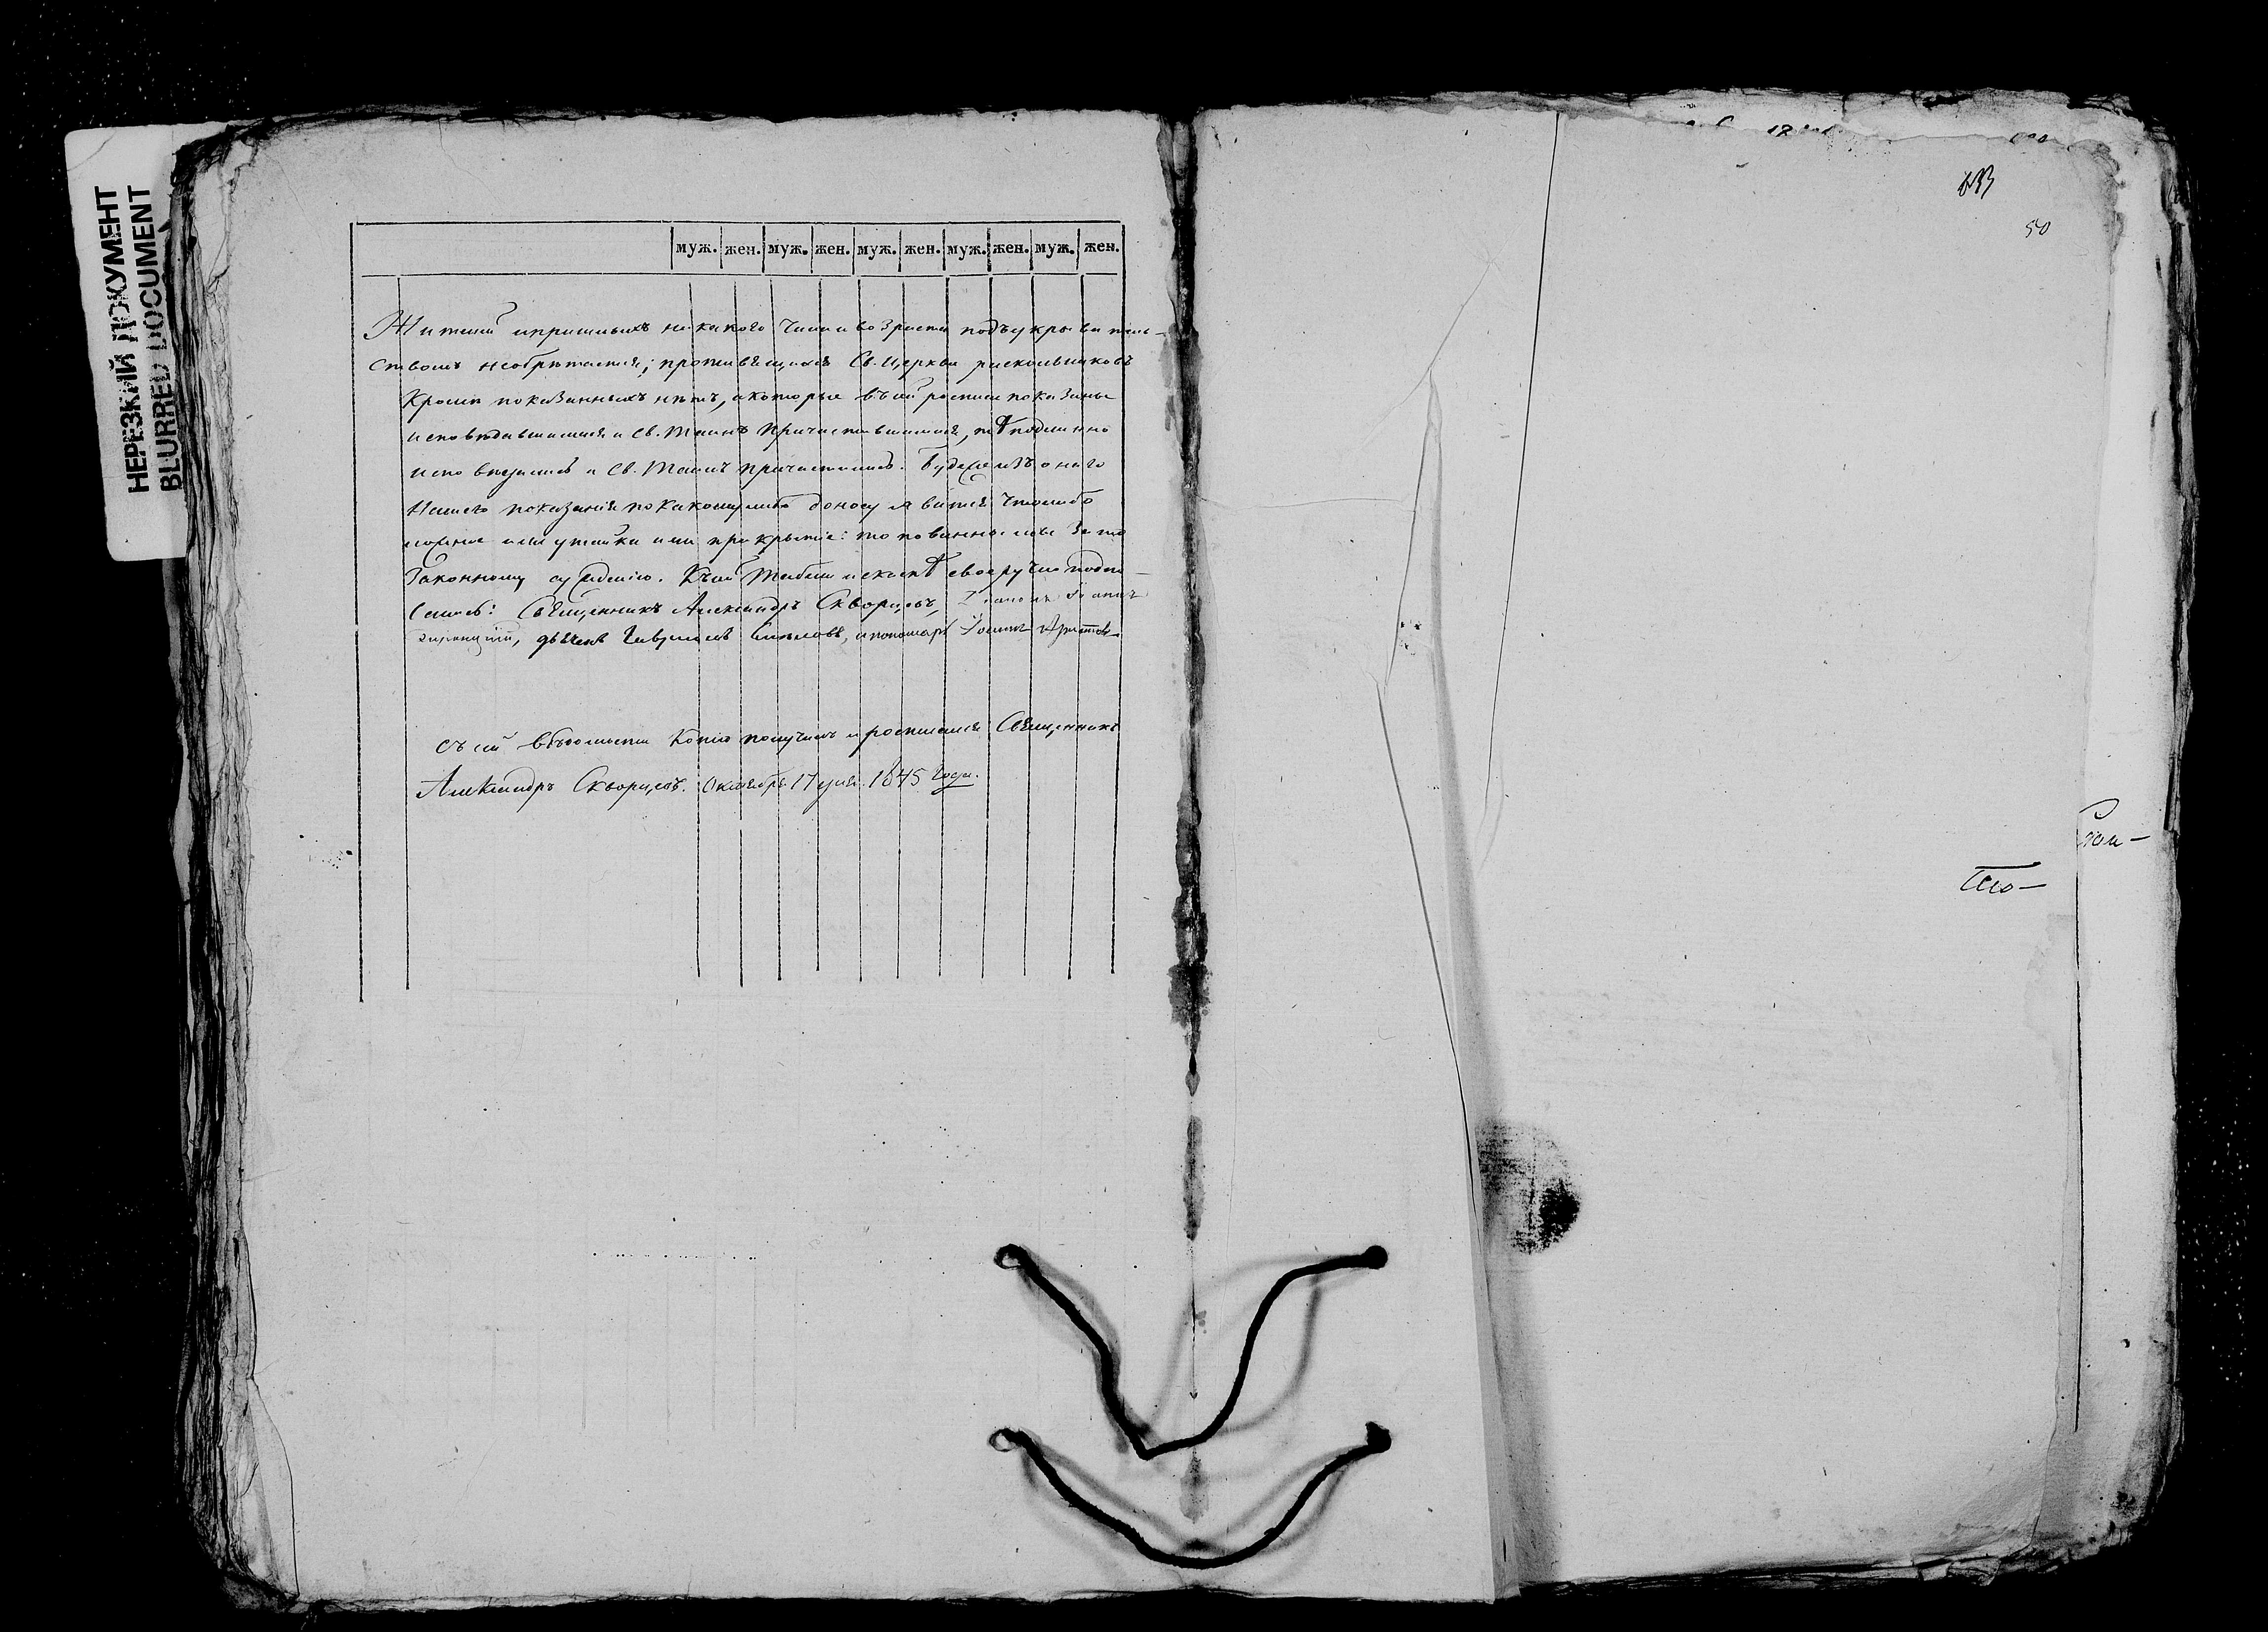 НЕРЕЗКИЙ ДОКУМЕНТ
BLURRED DOCUMENT
муж. жен. муж. жен. муж. жен. муж. жен. муж. жен.
Жителей и пришлыхъ никакого чина и возраста подъ укрыватель-
ствомъ необрѣтается; противящихся Св. Церкви раскольниковъ
Кромѣ показанныхъ нѣтъ, а которые въ сей росписи показаны
исповѣдавшимися и Св. Таинъ причастившимися, тѣ подлинно
исповѣдались и Св. Таинъ причастились. Буде же изъ онаго
Нашего показанія по какому либо доносу явится что либо
ложное или утайка или прикрытіе: то повинны мы за то
Законному сужденію. Къ сей
своеручно подпи-
сались: Священникъ Александръ Скворцовъ,
дьячекъ Гавріилъ и пономарь Іоаннъ
Съ сей вѣдомости Копію получилъ и росписался Священникъ
Александръ Скворцовъ. Октября 17 дня 1845 года.
50